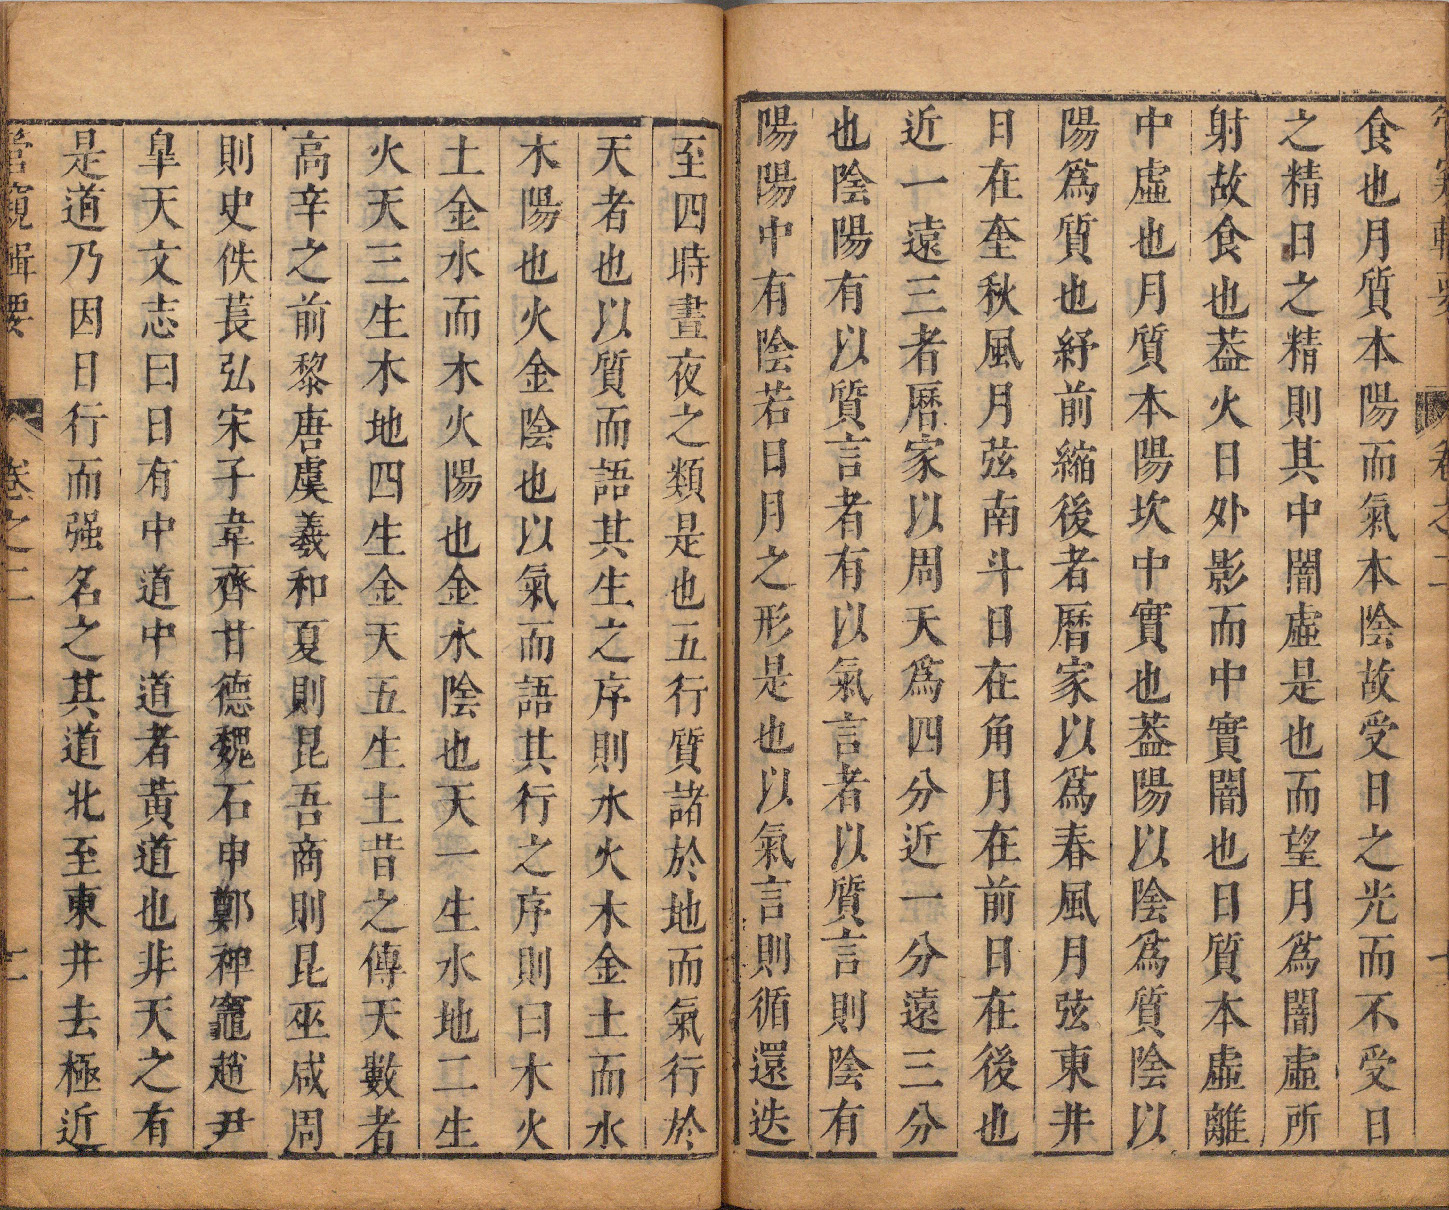 食也月質本陽而氣本陰故受日之光而不受日
之精日之精則其中闇虛是也而望月爲闇虛所
射故食也葢火日外影而中實闇也日質本虛離
中虛也月質本陽坎中實也葢陽以陰爲質陰以
陽爲質也紓前縮後者曆家以爲春風月弦東井
日在奎秋風月弦南斗日在角月在前日在後也
近一遠三者曆家以周天爲四分近一分遠三分
也陰陽有以質言者有以氣言者以質言則陰有
陽陽中有陰若日月之形是也以氣言則循還迭
至四時晝夜之類是也五行質諸於地而氣行於
天者也以質而語其生之序則水火木金土而水
木陽也火金陰也以氣而語其行之序則曰木火
土金水而木火陽也金水陰也天一生水地二生
火天三生木地四生金天五生土昔之傳天數者
高辛之前黎唐虞羲和夏則昆吾商則昆巫咸周
則史佚萇弘宋子韋齊甘德魏石申鄭裨竈趙尹
臯天文志曰日有中道中道者黃道也非天之有
是道乃因日行而强名之其道北至東井去極近
管窺輯要 卷之二 十二